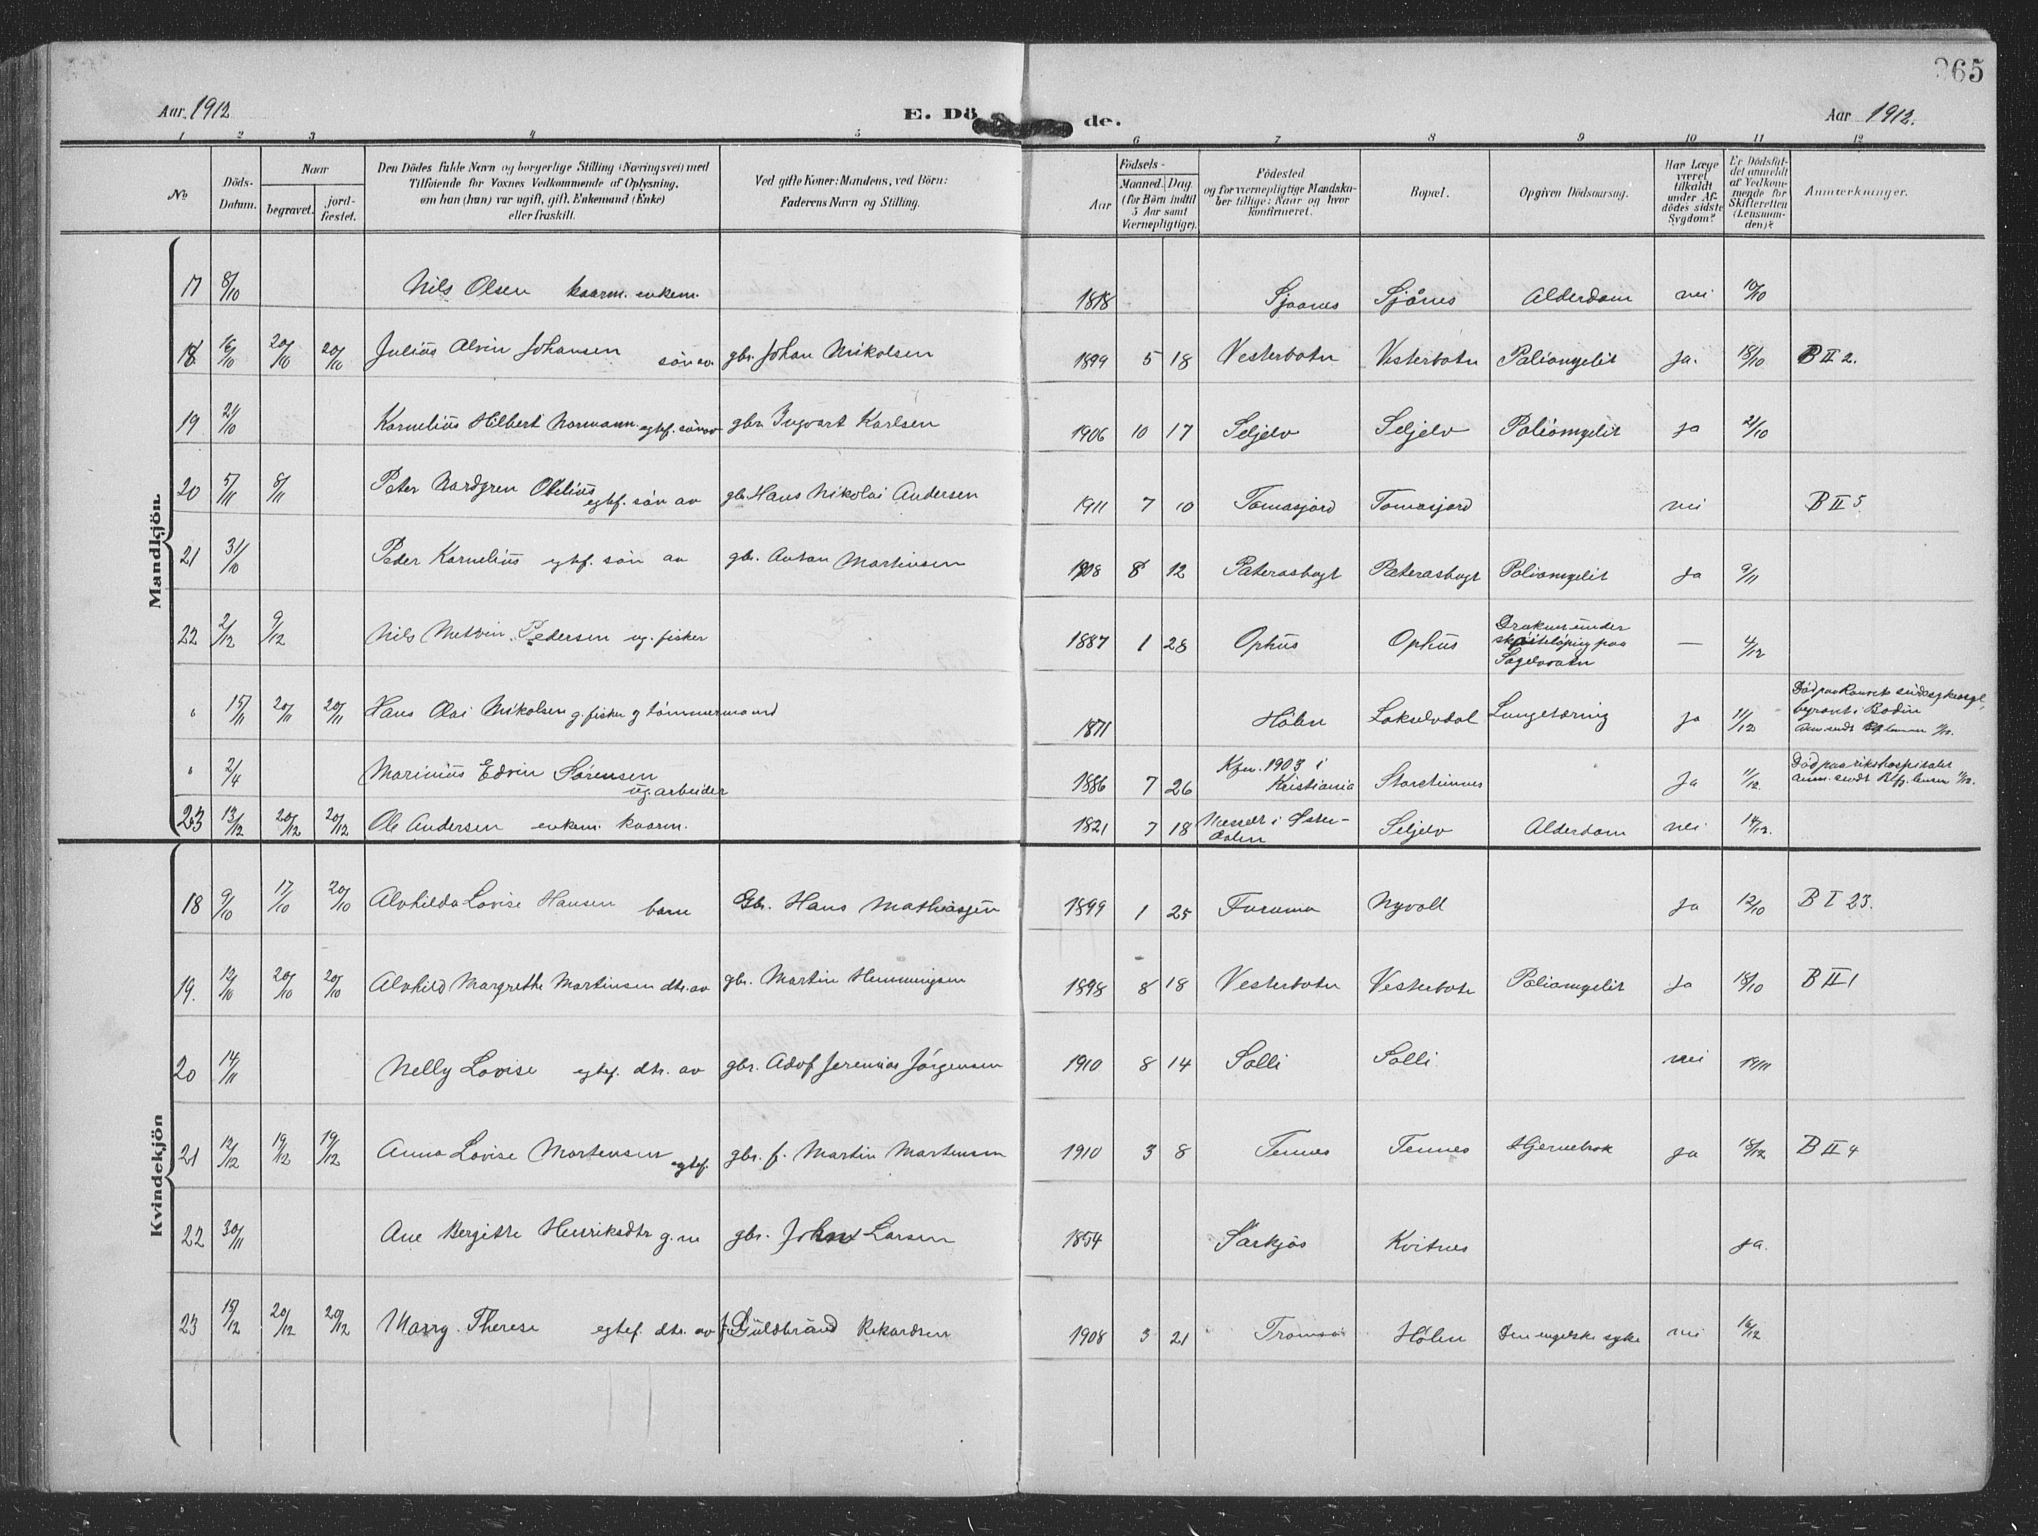 365
Aar 1912
E. Dö de.
Aar 1912.
1 2 3 4 5 6 7 8 9 10 11 12
No
Döds-Datum.
Naar
begravet.
jordfæstet.
Den Dödes fulde Navn og borgerlige Stilling (Næringsvei) med
Tilföiende for Voxnes Vedkommende af Oplysning,
om han (hun) var ugift, gift, Enkemand (Enke)
eller fraskilt.
Ved gifte Koner: Mandens, ved Börn:
Faderens Navn og Stilling.
Födsels-
Aar
Maaned. Dag.
(for Börn indtil
5 Aar samt
Værnepligtige).
Födested
og for værnepligtige Mandska-
ber tillige: Naar og hvor
konfirmeret.
Bopæl.
Opgiven Dödsaarsag.
Har Læge
været
tilkaldt
under Af-
dödes sidste
Sygdom?
Er Dödsfal-
det anmeldt
af Vedkom-
mende for
Skifteretten
(Lensman-
den)?
Anmærkninger.
Mandkjön.
17 8/10 Nils Olsen kaarm. enkem. 1818 Sjaanes Sjånes Alderdom nei 10/10
18 16/10 20/10 20/10 Julius Alvin Johansen søn av gbr. Johan Nikolsen 1899 5 18 Vesterbotn Vesterbotn Poliomyelit Ja. 18/10 B II 2.
19 21/10 Kornelius Hilbert Normann egtef. søn av gbr. Ingvart Karlsen 1906 10 17 Seljelv Seljelv Poliomyelit Ja 21/10
20 5/11 8/11 Peter Nordgren Obelius egtef. søn av gbr Hans Nikolai Andersen 1911 7 10 Tomasjord Tomasjord nei B II 5
21 31/10 Peder Kornelius egtef. søn av gbr. Anton Martinsen 1908 8 12 Paterasbugt Paterasbugt Poliomyelit Ja 9/11
22 2/12 9/12 Nils Metvin Pedersen ug. fisker 1887 1 28 Ophus Ophus Druknet under
skøiteløping paa
Sagelvvatn — 4/12
" 15/11 20/11 20/11 Hans Olai Nikolsen g. fisker og tømmermand 1871 Holen Lakselvdal Lungetæring Ja 11/12 Død paa Ranvet sindssykeasyl,
begravet i Bodin
" 2/4 Marinius Edvin Sørensen
ug. arbeider 1886 7 26 Kfm. 1903 i
Kristiania Storsteinnes Ja 11/12. Død paa rikshospitalet
23 13/12 20/12 20/12 Ole Andersen enkem. kaarm. 1821 7 18 Nesset i Øster-
dalen Seljelv Alderdom nei 14/12.
Kvindekjön
18 9/10 17/10 20/10 Alvhilda Lovise Hansen barn Gbr. Hans Mathiasjen 1899 1 25 Furumo Nyvoll Ja 12/10 B I 23.
19. 12/10 20/10 20/10 Alvhild Margrethe Martinsen dtr. av gbr. Martin Hemmingsen 1898 8 18 Vesterbotn Vesterbotn Poliomyelit Ja 18/10 B II 1
20 14/11 Nelly Lovise egtef. dtr. av gbr. Adof Jeremias Jørgensen 1910 8 14 Solli Solli nei 19/11
21 12/12 19/12 19/12 Anna Lovise Mortensen egtef. gbr. f. Martin Martensen 1910 3 8 Tennes Tennes Hjernebrok Ja 18/12 B II 4
22 30/11 Ane Bergitte Henriksdtr g. m gbr. John Larsen 1854 Sørkjos Kvitnes Ja.
23 15/12 20/12 20/12 Marry Therese egtef. dtr. av Guldbrand Rikardsen 1908 3 21 Tromsø Holen Den engelske syke nei 16/12